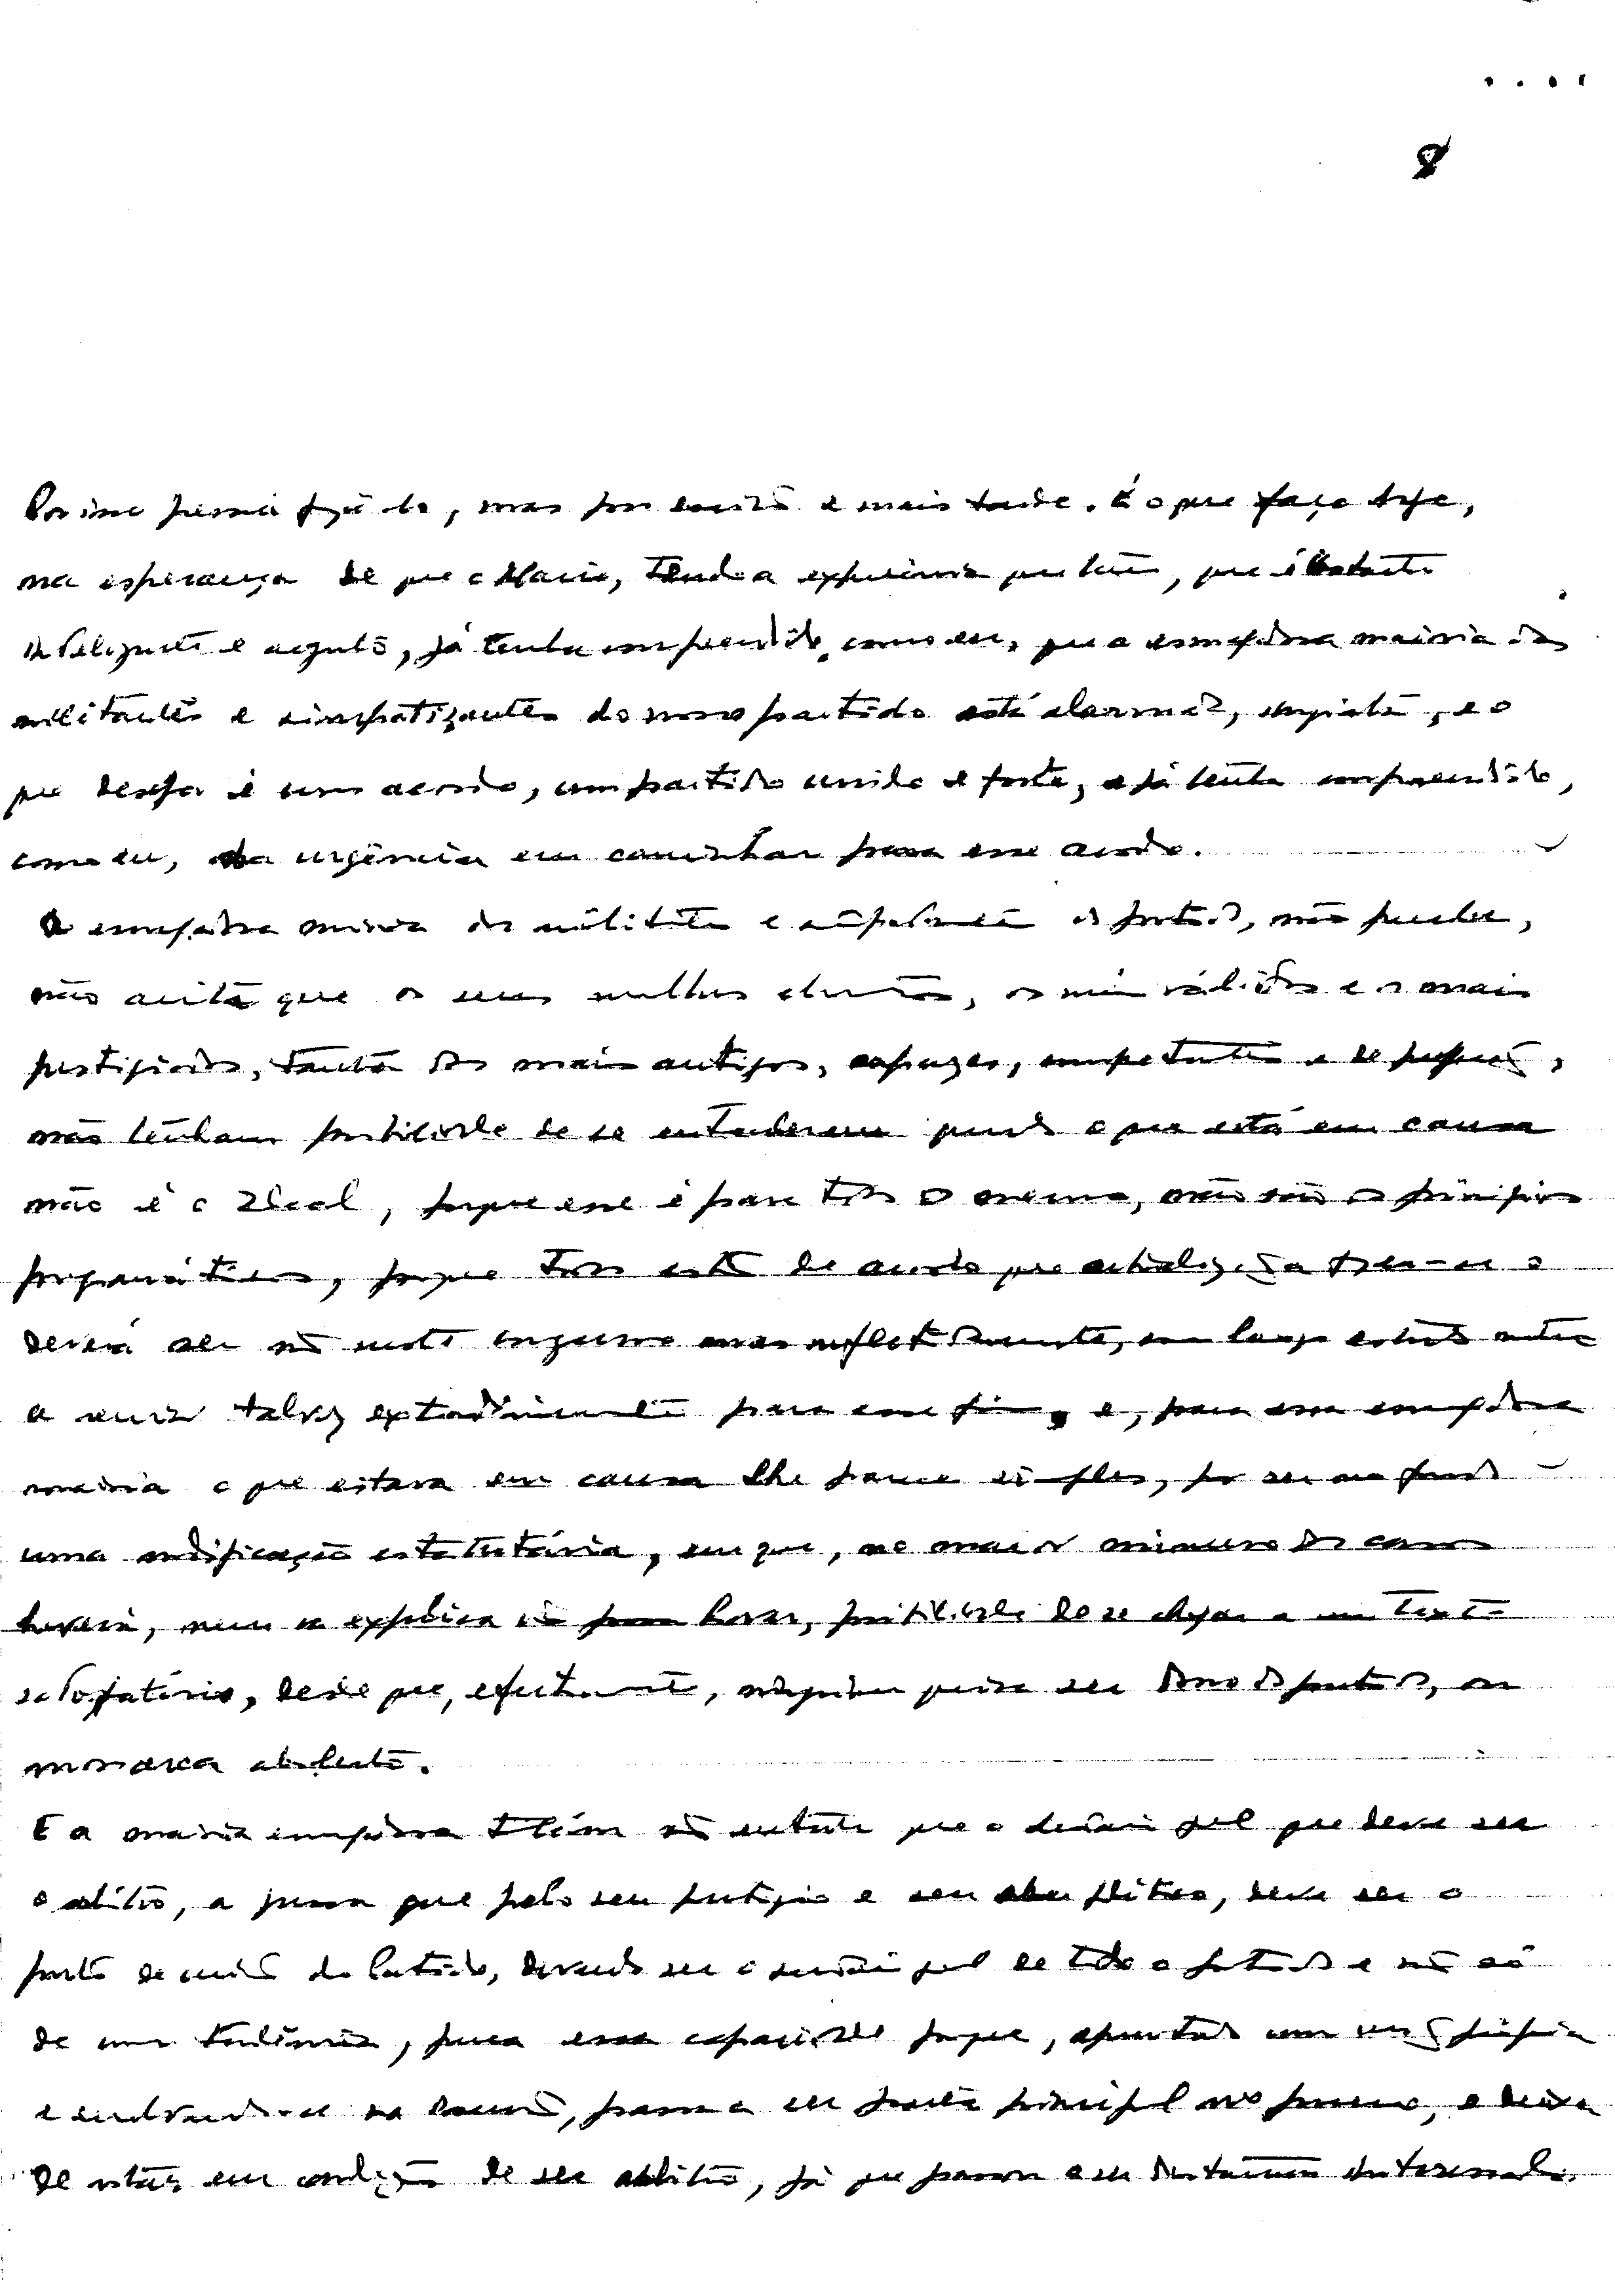 8
Por isso poderia fazê-lo, mas por escrito e mais tarde. É o que faço hoje,
na esperança de que o Mário, tendo a experiência que tem, que é bastante
inteligente e arguto, já tenha compreendido, como eu, que a esmagadora maioria dos
militantes e simpatizantes do nosso partido está alarmada, e o
que deseja é um acordo, um partido unido e forte, e já tenha compreendido,
como eu, da urgência em caminhar para esse acordo.
A esmagadora maioria dos militantes e simpatizantes do partido, não percebe,
não aceita que os seus melhores elementos, os mais válidos e os mais
prestigiados, tanto dos mais antigos, capazes, competentes e de
não tenham possibilidade de se entenderem quando o que está em causa
não é o ideal, porque esse é para todos o mesmo, não são os princípios
programáticos, porque todos estão de acordo que actualizá-los
deverá ser não neste congresso mas reflectidamente, em largo estudo
a reunir talvez extraordinariamente para esse fim, e, para essa esmagadora
maioria o que estava em causa lhe parece simples, por ser no fundo
uma modificação estatutária, em que, no maior número dos casos
haveria, nem se explica que não possa haver, possibilidade de se chegar a um texto
satisfatório, desde que, efectivamente, ninguém queira ser dono do partido, ou
monarca absoluto.
E a maioria esmagadora também não entende que o secretário geral que devia ser
o árbitro, a pessoa que pelo seu prestígio e seu valor político, devia ser o
ponto de união do Partido, devendo ser o secretário geral de todo o partido e não só
de uma tendência, perca essa capacidade porque, apresentando uma moção própria
e embrenhando-se na luta, passa a ser parte principal no processo, e deixa
de estar em condições de ser árbitro, já que passou a ser directamente interessado.